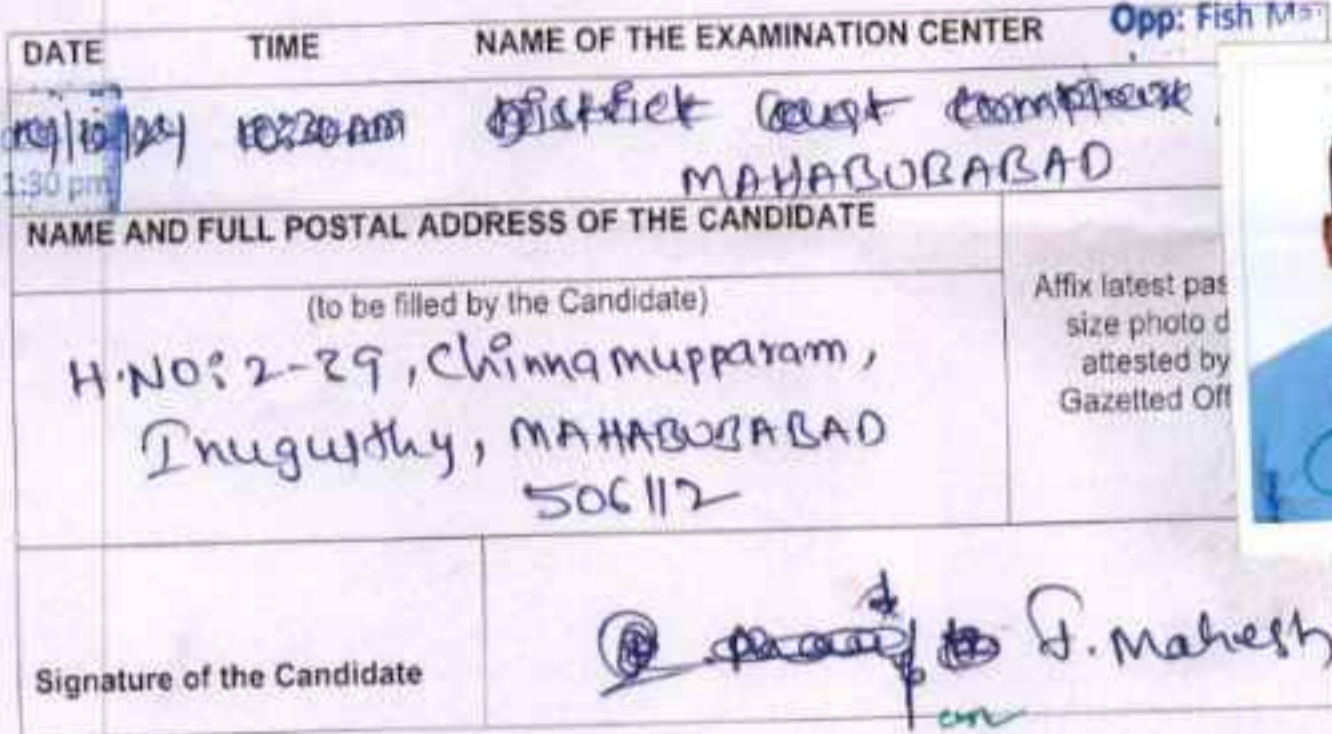 Opp: Fish
DATE TIME NAME OF THE EXAMINATION CENTER
10:30 AM District Court
1:30 pm
MAHABUBABAD
NAME AND FULL POSTAL ADDRESS OF THE CANDIDATE
(to be filled by the Candidate)
H.NO: 2-29, Chinnamupparam,
Inugurthy, MAHABUBABAD
506112
Affix latest pas
size photo d
attested by
Gazetted Off
Signature of the Candidate
J. Mahesh